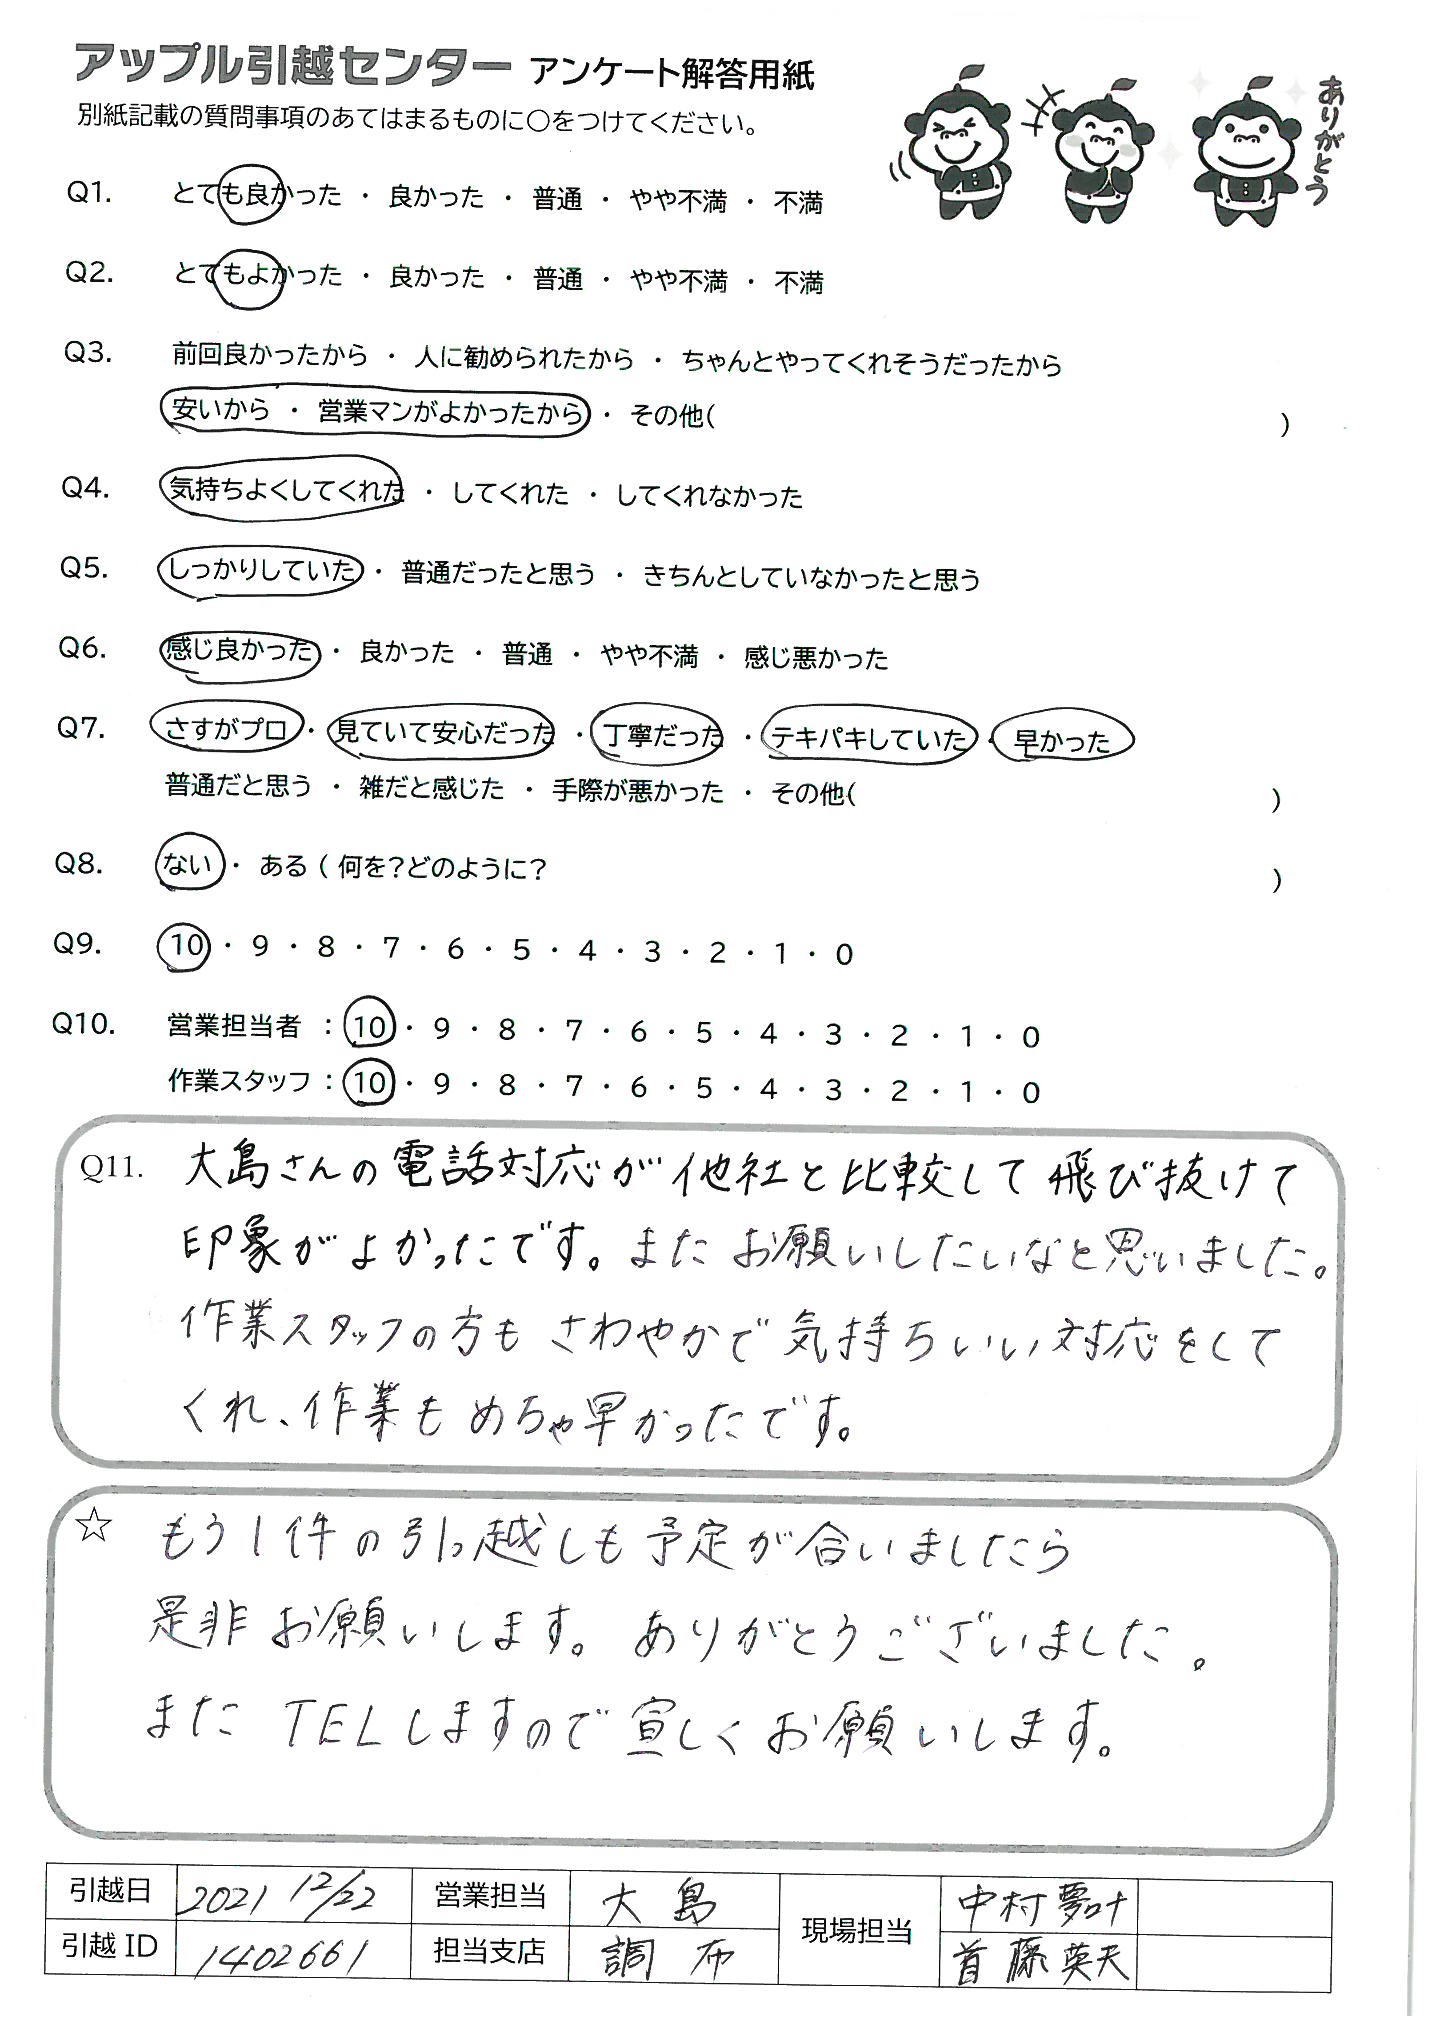 アップル引越センター アンケート解答用紙
別紙記載の質問事項のあてはまるものに○をつけてください。
ありがとう
Q1. とても良かった ・ 良かった ・ 普通 ・ やや不満 ・ 不満
Q2. とてもよかった ・ 良かった ・ 普通 ・ やや不満 ・ 不満
Q3. 前回良かったから ・ 人に勧められたから ・ ちゃんとやってくれそうだったから
安いから ・ 営業マンがよかったから ・ その他( )
Q4. 気持ちよくしてくれた ・ してくれた ・ してくれなかった
Q5. しっかりしていた ・ 普通だったと思う ・ きちんとしていなかったと思う
Q6. 感じ良かった ・ 良かった ・ 普通 ・ やや不満 ・ 感じ悪かった
Q7. さすがプロ ・ 見ていて安心だった ・ 丁寧だった ・ テキパキしていた ・ 早かった
普通だと思う ・ 雑だと感じた ・ 手際が悪かった ・ その他( )
Q8. ない ・ ある ( 何を?どのように? )
Q9. 10 ・ 9 ・ 8 ・ 7 ・ 6 ・ 5 ・ 4 ・ 3 ・ 2 ・ 1 ・ 0
Q10. 営業担当者 : 10 ・ 9 ・ 8 ・ 7 ・ 6 ・ 5 ・ 4 ・ 3 ・ 2 ・ 1 ・ 0
作業スタッフ : 10 ・ 9 ・ 8 ・ 7 ・ 6 ・ 5 ・ 4 ・ 3 ・ 2 ・ 1 ・ 0
Q11. 大島さんの電話対応が他社と比較して飛び抜けて
印象がよかったです。またお願いしたいなと思いました。
作業スタッフの方もさわやかで気持ちいい対応をして
くれ、作業もめちゃ早かったです。
☆ もう1件の引っ越しも予定が合いましたら
是非お願いします。ありがとうございました。
またTELしますので宜しくお願いします。
引越日 2021 12/22 営業担当 大島 現場担当 中村夢叶
引越ID 1402661 担当支店 調布 首藤英天